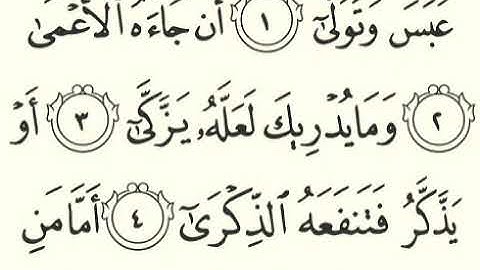 عَبَسَ وَتَوَلَّىٰٓ ١ أَن جَآءَهُ ٱلْأَعْمَىٰ
٢ وَمَا يُدْرِيكَ لَعَلَّهُۥ يَزَّكَّىٰٓ ٣ أَوْ
يَذَّكَّرُ فَتَنفَعَهُ ٱلذِّكْرَىٰٓ ٤ أَمَّا مَنِ